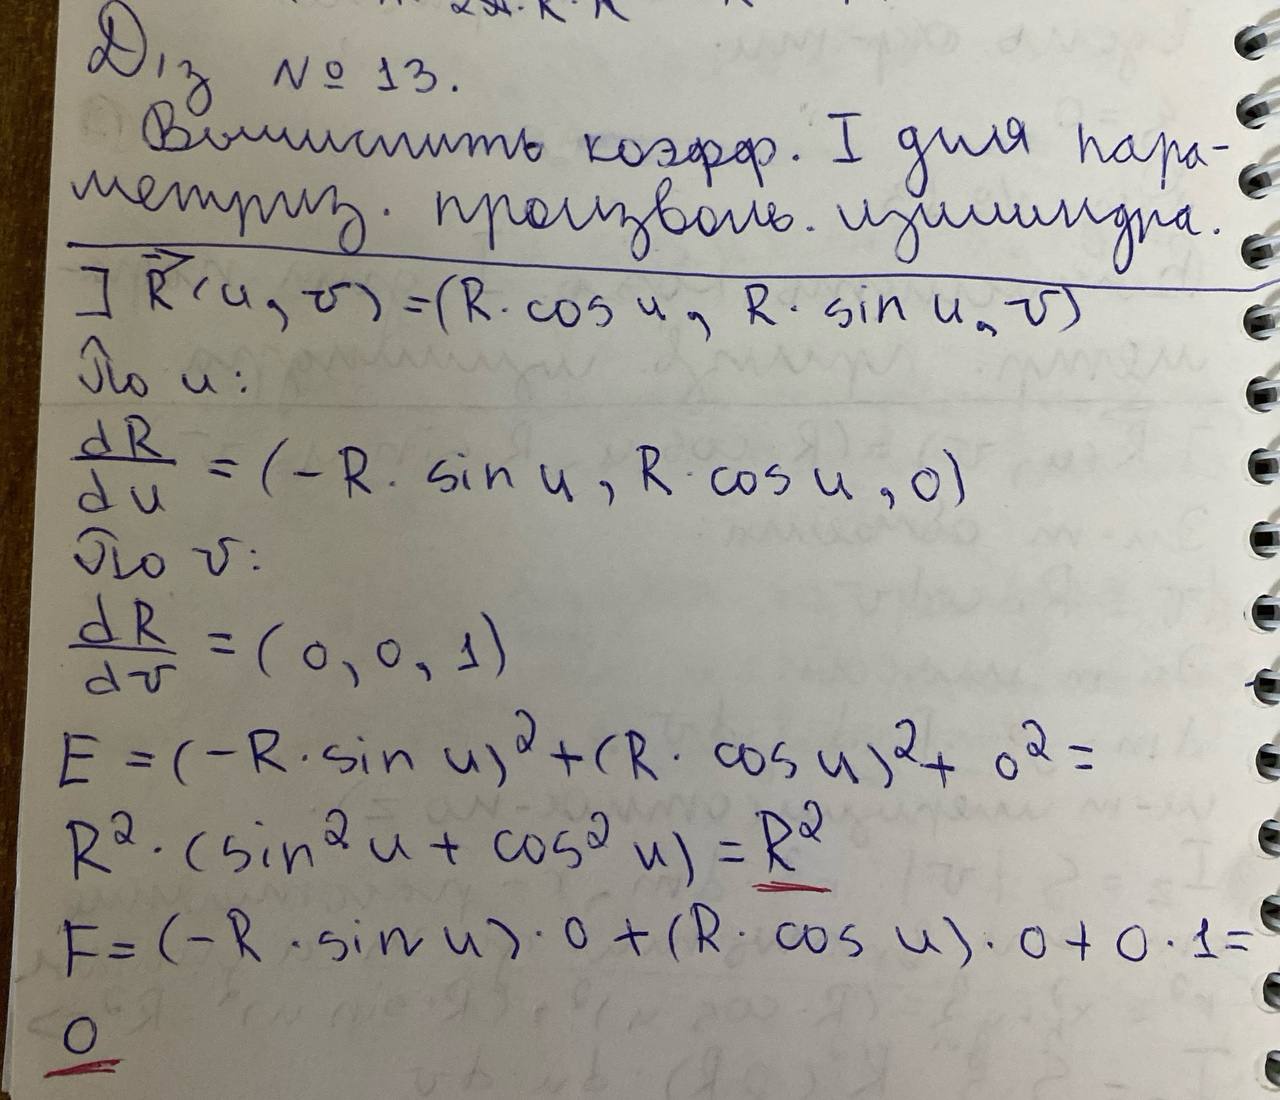 Д/з № 13.
Вычислить коэфф. I для пара-
метриз. произволь. цилиндра.
] R⃗(u, v) = (R · cos u, R · sin u, v)
По u:
dR/du = (-R · sin u, R · cos u, 0)
По v:
dR/dv = (0, 0, 1)
E = (-R · sin u)² + (R · cos u)² + 0² =
R² · (sin² u + cos² u) = R²
F = (-R · sin u) · 0 + (R · cos u) · 0 + 0 · 1 =
0